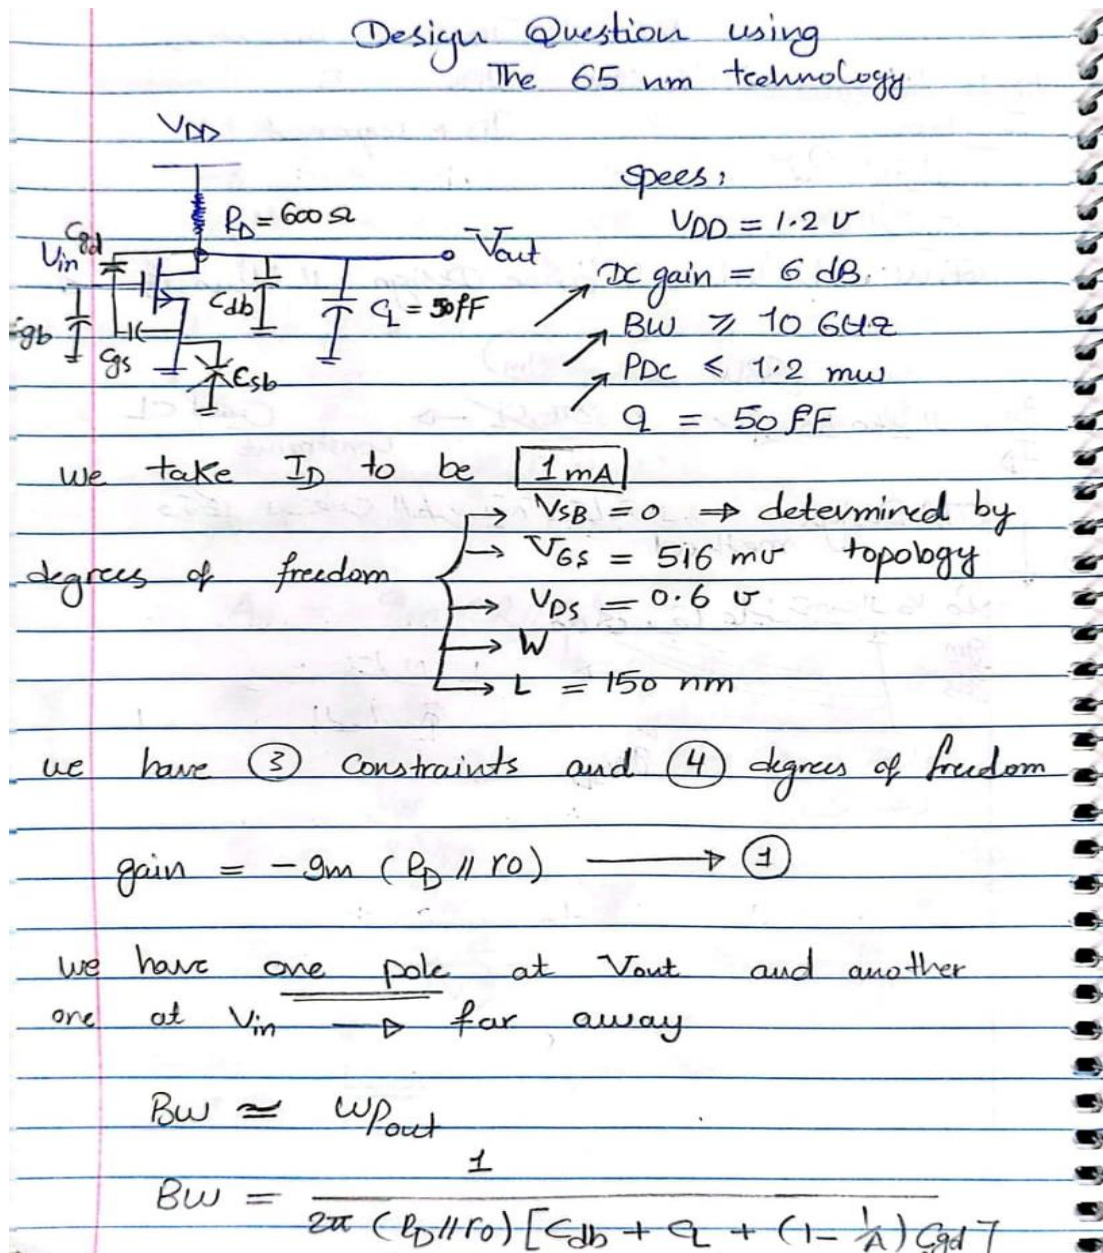 Design Question using
The 65 nm technology
VDD
RD = 600 Ω
Cgd
Vin
Vout
Cdb
CL = 50 fF
Cgb
Cgs
Csb
Specs:
VDD = 1.2 v
DC gain = 6 dB.
BW ≥ 10 GHz
PDC ≤ 1.2 mw
CL = 50 fF
we take ID to be 1 mA
degrees of freedom
→ VSB = 0 ⇒ determined by topology
→ VGS = 516 mv
→ VDS = 0.6 v
→ W
→ L = 150 nm
we have ③ constraints and ④ degrees of freedom
gain = -gm (RD // ro) → ①
we have one pole at Vout and another
one at Vin → far away
BW ≃ ωPout
BW = 1 / 2π (RD // ro) [Cdb + CL + (1 - 1/A) Cgd]